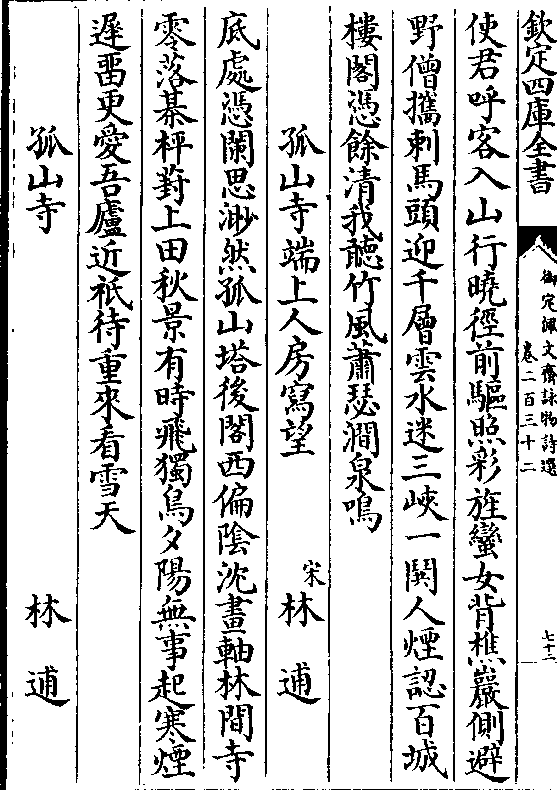 欽定四庫全書
御定佩文齋詠物詩選
卷二百三十二
七十二
使君呼客入山行曉徑前驅照彩旌蠻女背樵巖側避
野僧攜刺馬頭迎千層雲水迷三峽一閧人煙認百城
樓閣憑餘清我聽竹風蕭瑟澗泉鳴
孤山寺端上人房寫望 宋 林逋
底處憑闌思渺然孤山塔後閣西偏陰沈畫軸林間寺
零落棊枰葑上田秋景有時飛獨鳥夕陽無事起寒煙
遲畱更愛吾廬近祇待重來看雪天
孤山寺 林逋